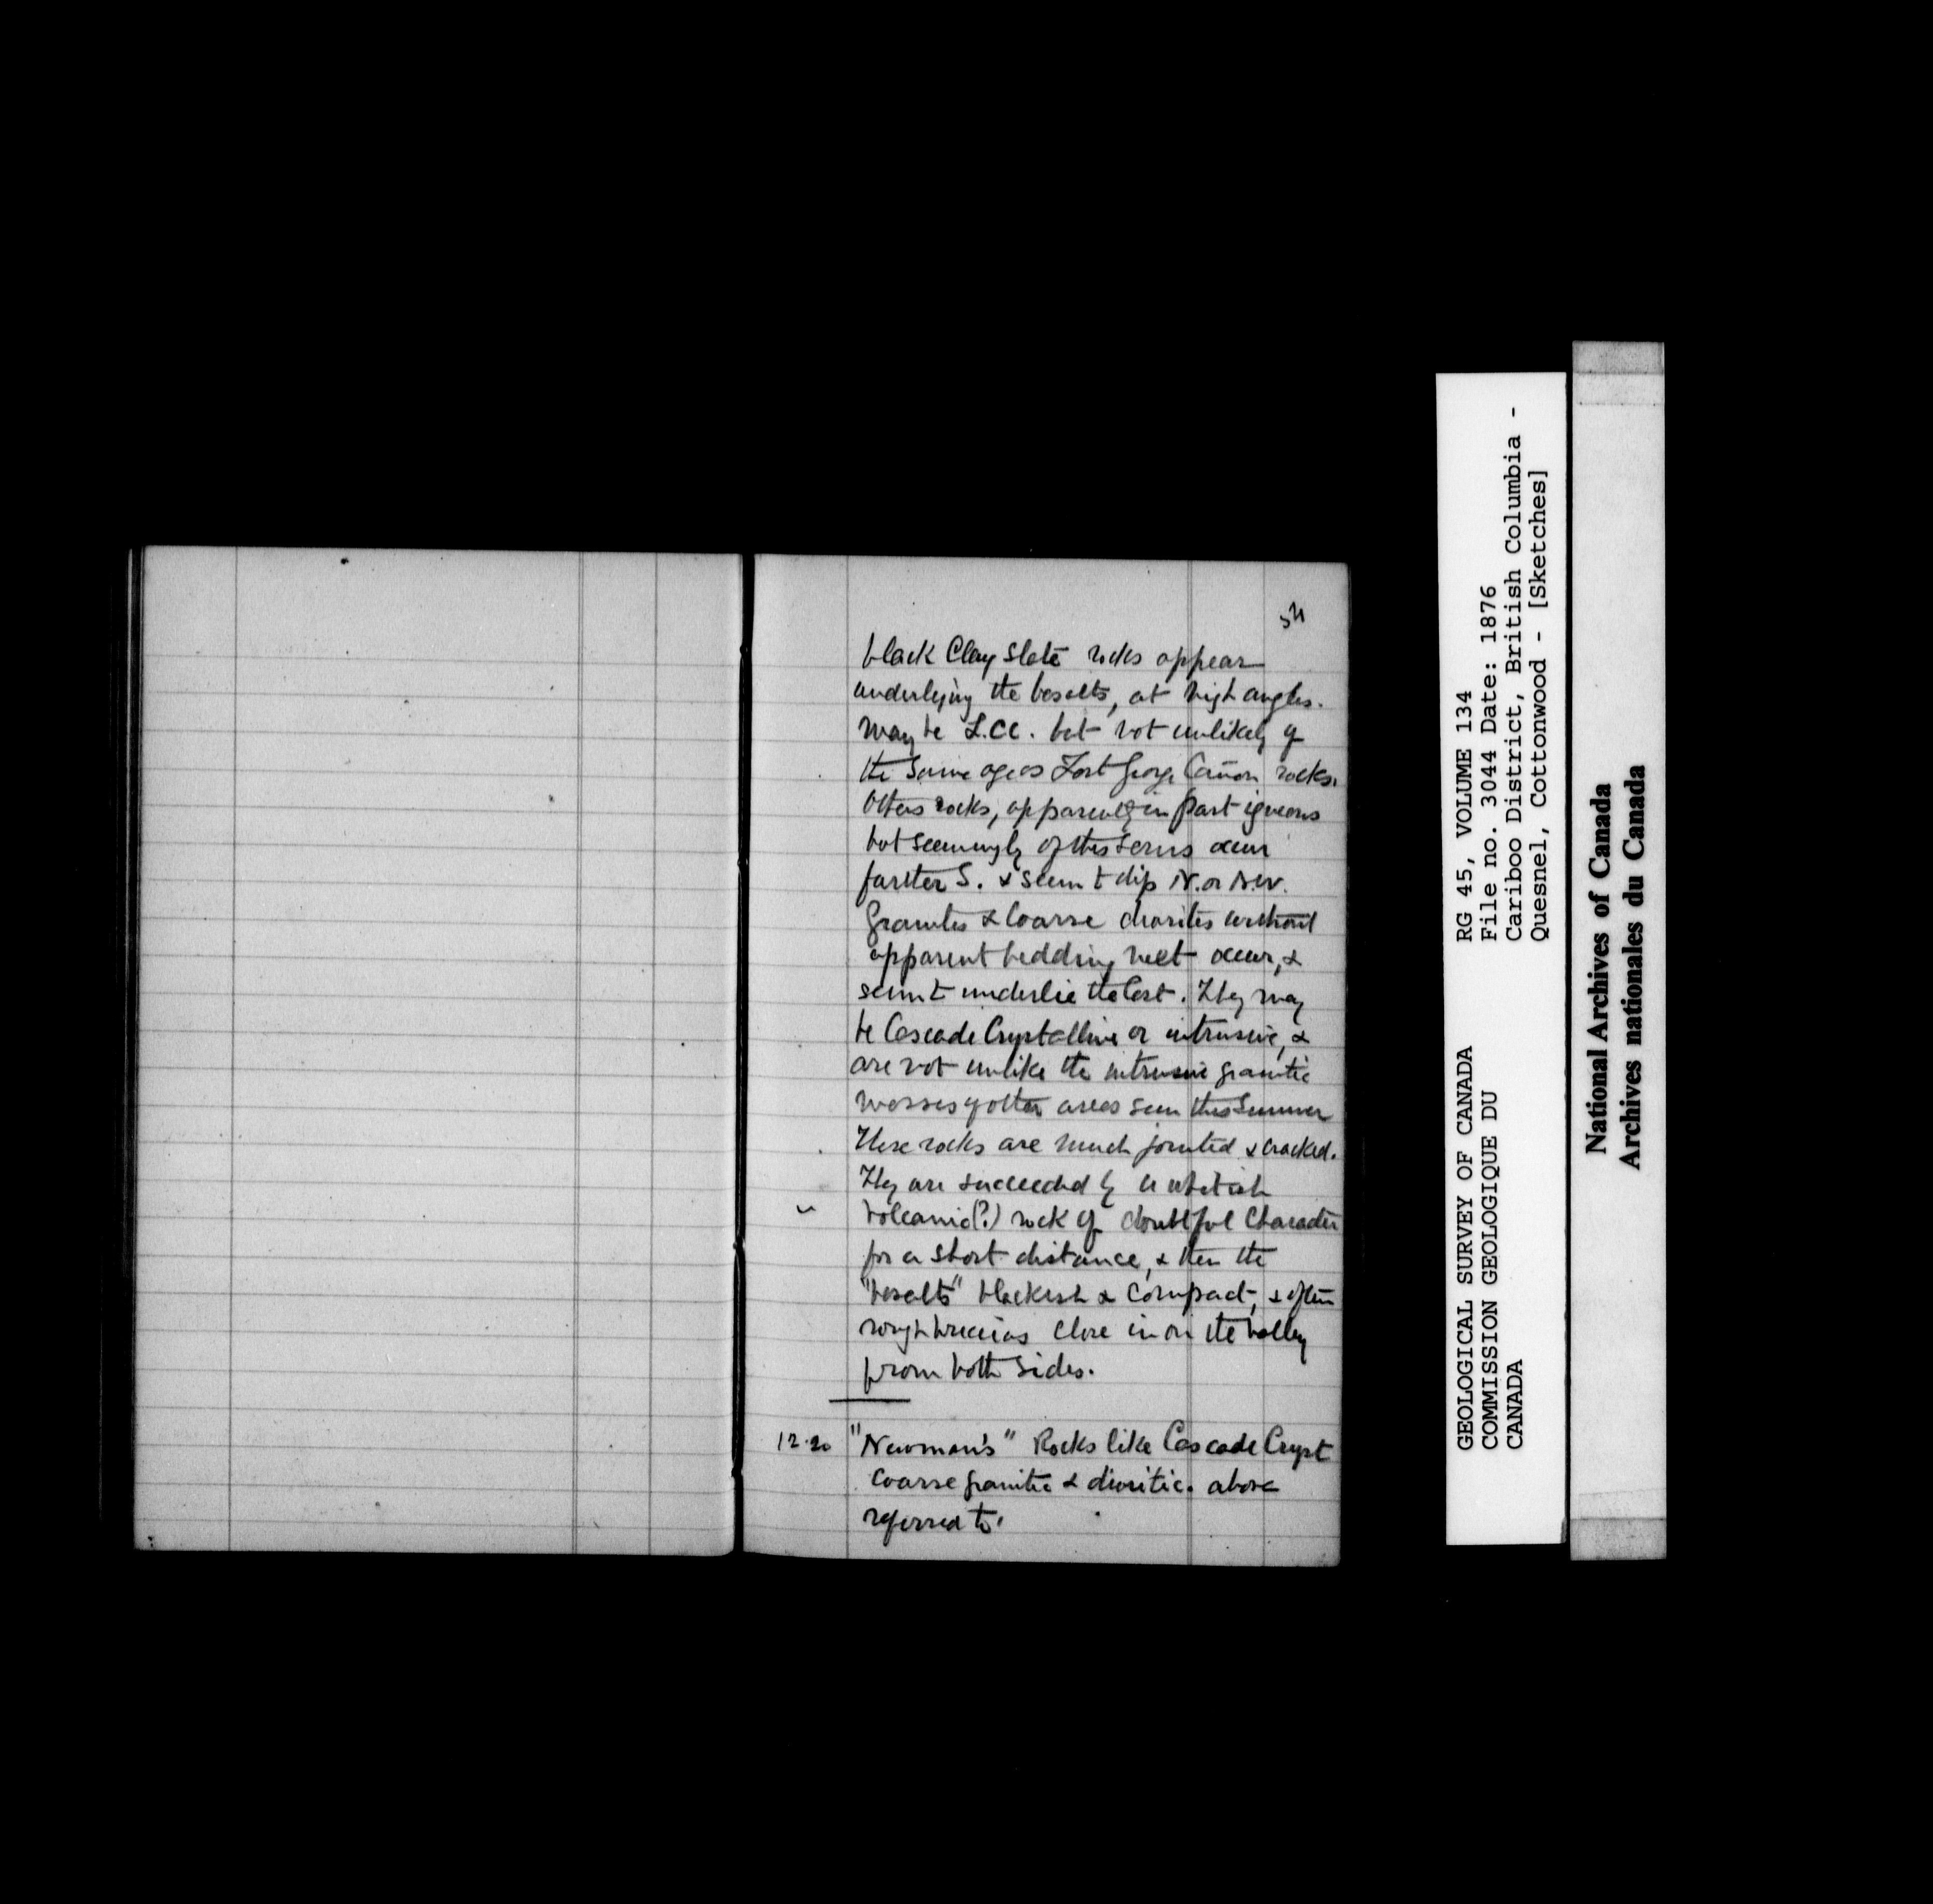 54
black Clay Slate rocks appear
underlying the basalts, at high angles.
may be L.CC. but not unlikely of
the same age as Fort George Cañon rocks.
Other rocks, apparently in part igneous
but seemingly of this series occur
farther S. & seem to dip N. or N.W.
Granites & Coarse diorites without
apparent bedding next occur, &
seem to underlie the last. They may
be Cascade Crystalline or intrusive, &
are not unlike the intrusive granitic
masses of other areas seen this Summer
These rocks are much jointed & cracked.
They are succeeded by a whitish
volcanic(?) rock of doubtful Character
for a short distance, & then the
"basalts" blackish & compact, & often
rough breccias close in on the valley
from both sides.
12.20 "Newman's" Rocks like Cascade Cryst
coarse granitic & dioritic. above
referred to.
GEOLOGICAL SURVEY OF CANADA
COMMISSION GEOLOGIQUE DU
CANADA
RG 45, VOLUME 134
File no. 3044 Date: 1876
Cariboo District, British Columbia -
Quesnel, Cottonwood - [Sketches]
National Archives of Canada
Archives nationales du Canada